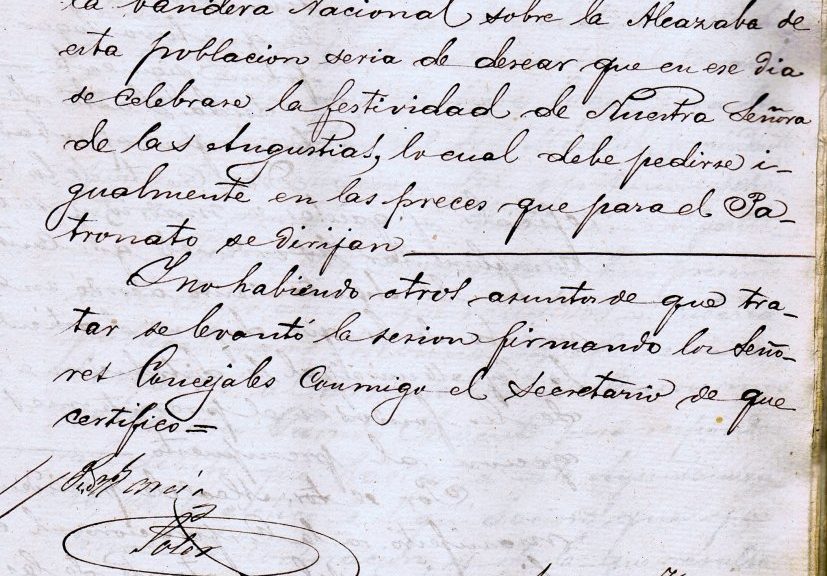 la bandera Nacional sobre la Alcazaba de
esta poblacion seria de desear que en ese dia
se celebrase la festividad de Nuestra Señora
de las Angustias, lo cual debe pedirse i-
gualmente en las preces que para el Pa-
tronato se dirijan
Y no habiendo otros asuntos de que tra-
tar se levantó la sesion firmando los Seño-
res Concejales conmigo el Secretario de que
certifico=
Garcia